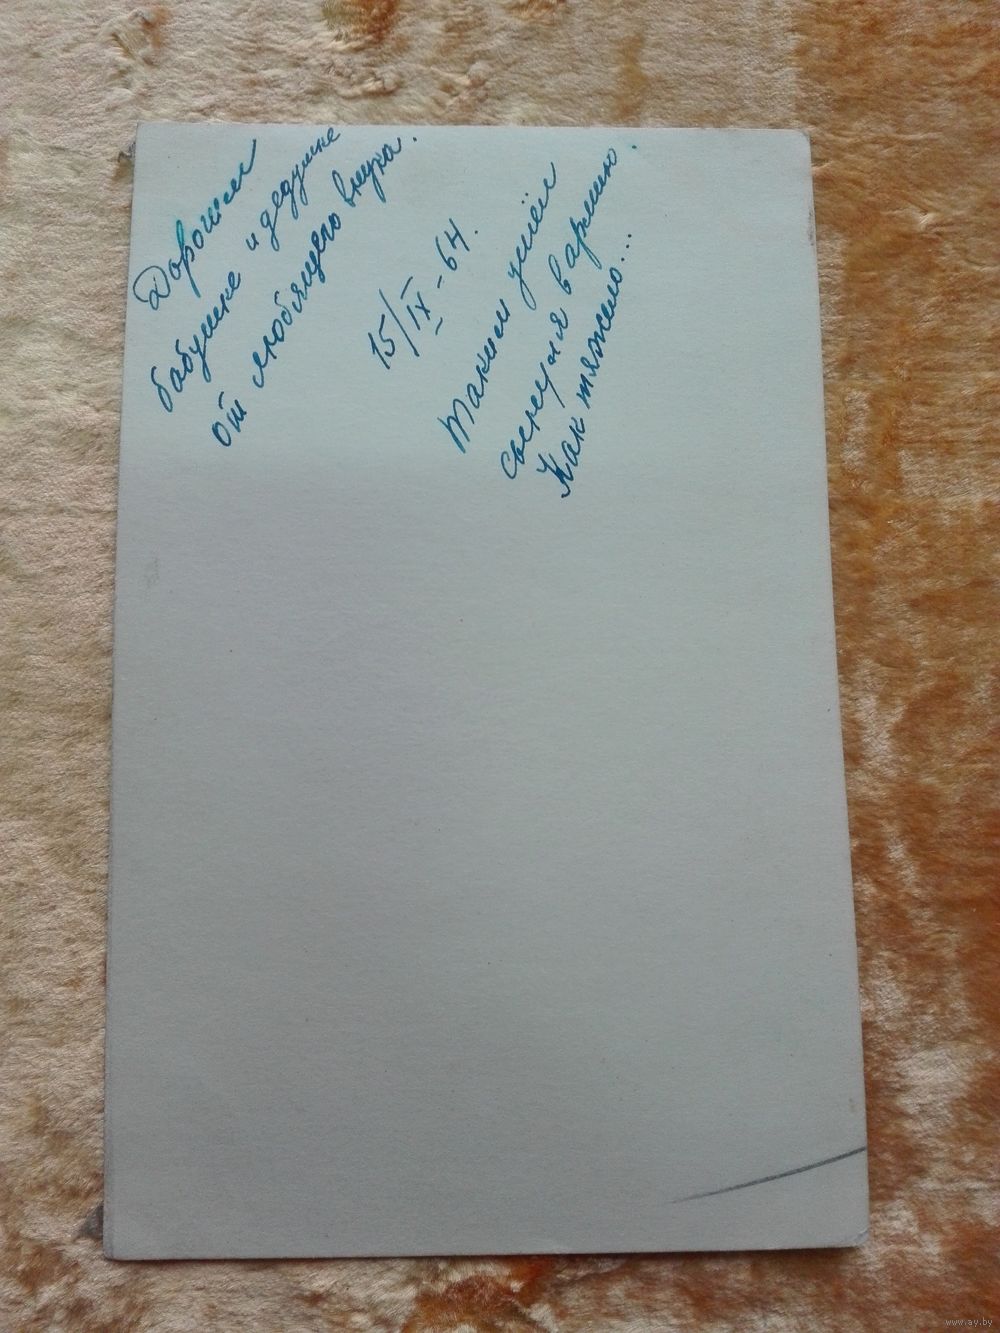 Дорогим
бабушке и дедушке
от любящего внука.
15/IX-64.
Таким ушёл
сынуля в армию.
Как тяжело...
www.ay.by